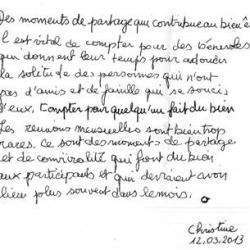 Des moments de partage qui contribue au bien ê
l est vital de compter pour des bénévoles
qui donnent leur temps pour adoucir
la solitude des personnes qui n'ont
pas d'amis et de famille qui se soucie
d'eux. Compter pour quelqu'un fait du bien
Les réunions mensuelles sont bien trop
rares. Ce sont des moments de partage
et de convivialité qui font du bien
aux participants et qui devraient avoir
lieu plus souvent dans le mois.
Christine
12.03.2013